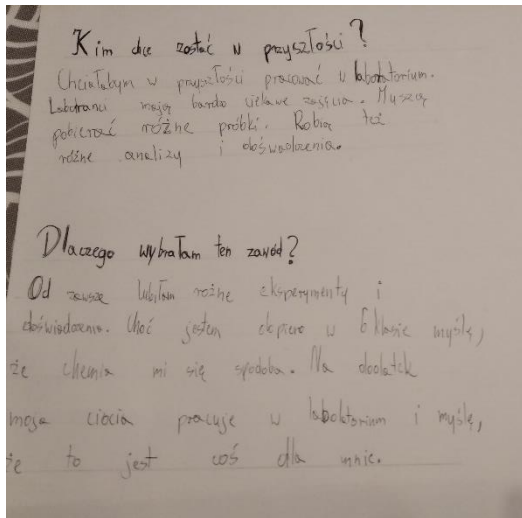 Kim chce zostać w przyszłości?
Chciałabym w przyszłości pracować w laboratorium.
Laboranci mają bardzo ciekawe zajęcia. Muszą
pobierać różne próbki. Robią też
różne analizy i doświadczenia.
Dlaczego wybrałam ten zawód?
Od zawsze lubiłam różne eksperymenty i
doświadczenia. Choć jestem dopiero w 6 klasie myślę,
że chemia mi się spodoba. Na dodatek
moja ciocia pracuje w laboktorium i myślę,
że to jest coś dla mnie.